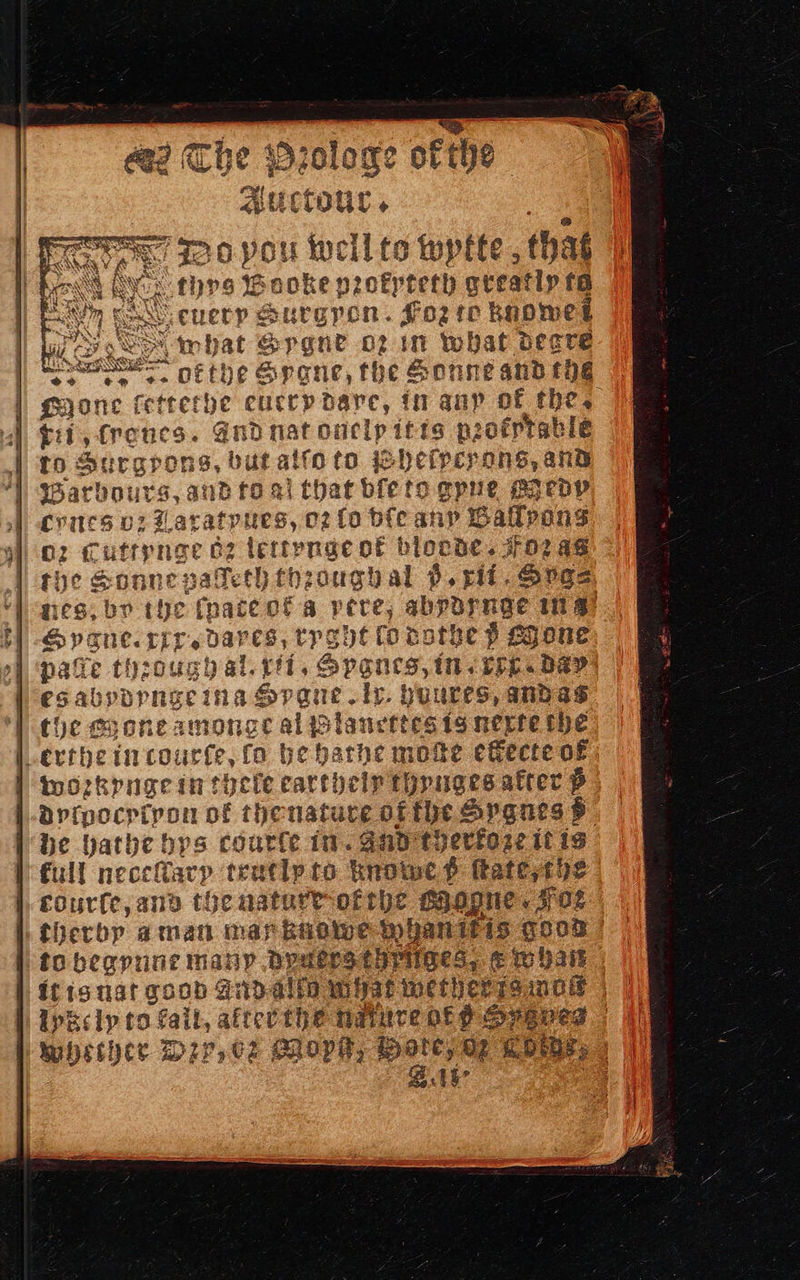 ❧ The Prologe of the
Auctour.
DO you well to wytte, that
thys Booke profyteth greatly to
euery Surgyon. For to knowe ĩ
what Sygne or in what degre
of the Sygne, the Sonne and the
Mone settethe euery daye, in any of the.
xii, sygnes. And nat onely it is profytable
to Surgyons, but also to Phesycyons, and
Barbours, and to al that vse to gyue Medy
cynes or Laxatyues, or to vse any Bassyons
or Cuttynge or lettynge of bloode. For as
the Sonne passeth through al þ. xii. Syg⸗
nes, by the space of a yere, abydynge in a
Sygne. xxx. dayes, ryght so dothe þ Mone
passe through al. xii. Sygnes, in. xxx. day
es abydynge in a Sygne. lx. houres, and as
the Mone amonge al Planettes is nexte the
erthe in course, so he hathe moste effecte of
workynge in these earthely thynges after þ
dysposysyon of the nature of the Sygnes þ
he hathe hys course in. And therfore it is
full necessary truely to knowe þ state, the
course, and the nature of the Moone. For
therby a man may knowe whan it is good
to begynne many dyuers thynges, & whan
it is nat good And also what wether is most
lykely to fall, after the nature of þ Sygnes
whether Dry, or Moyst, Hote, or Colde,
A.ii